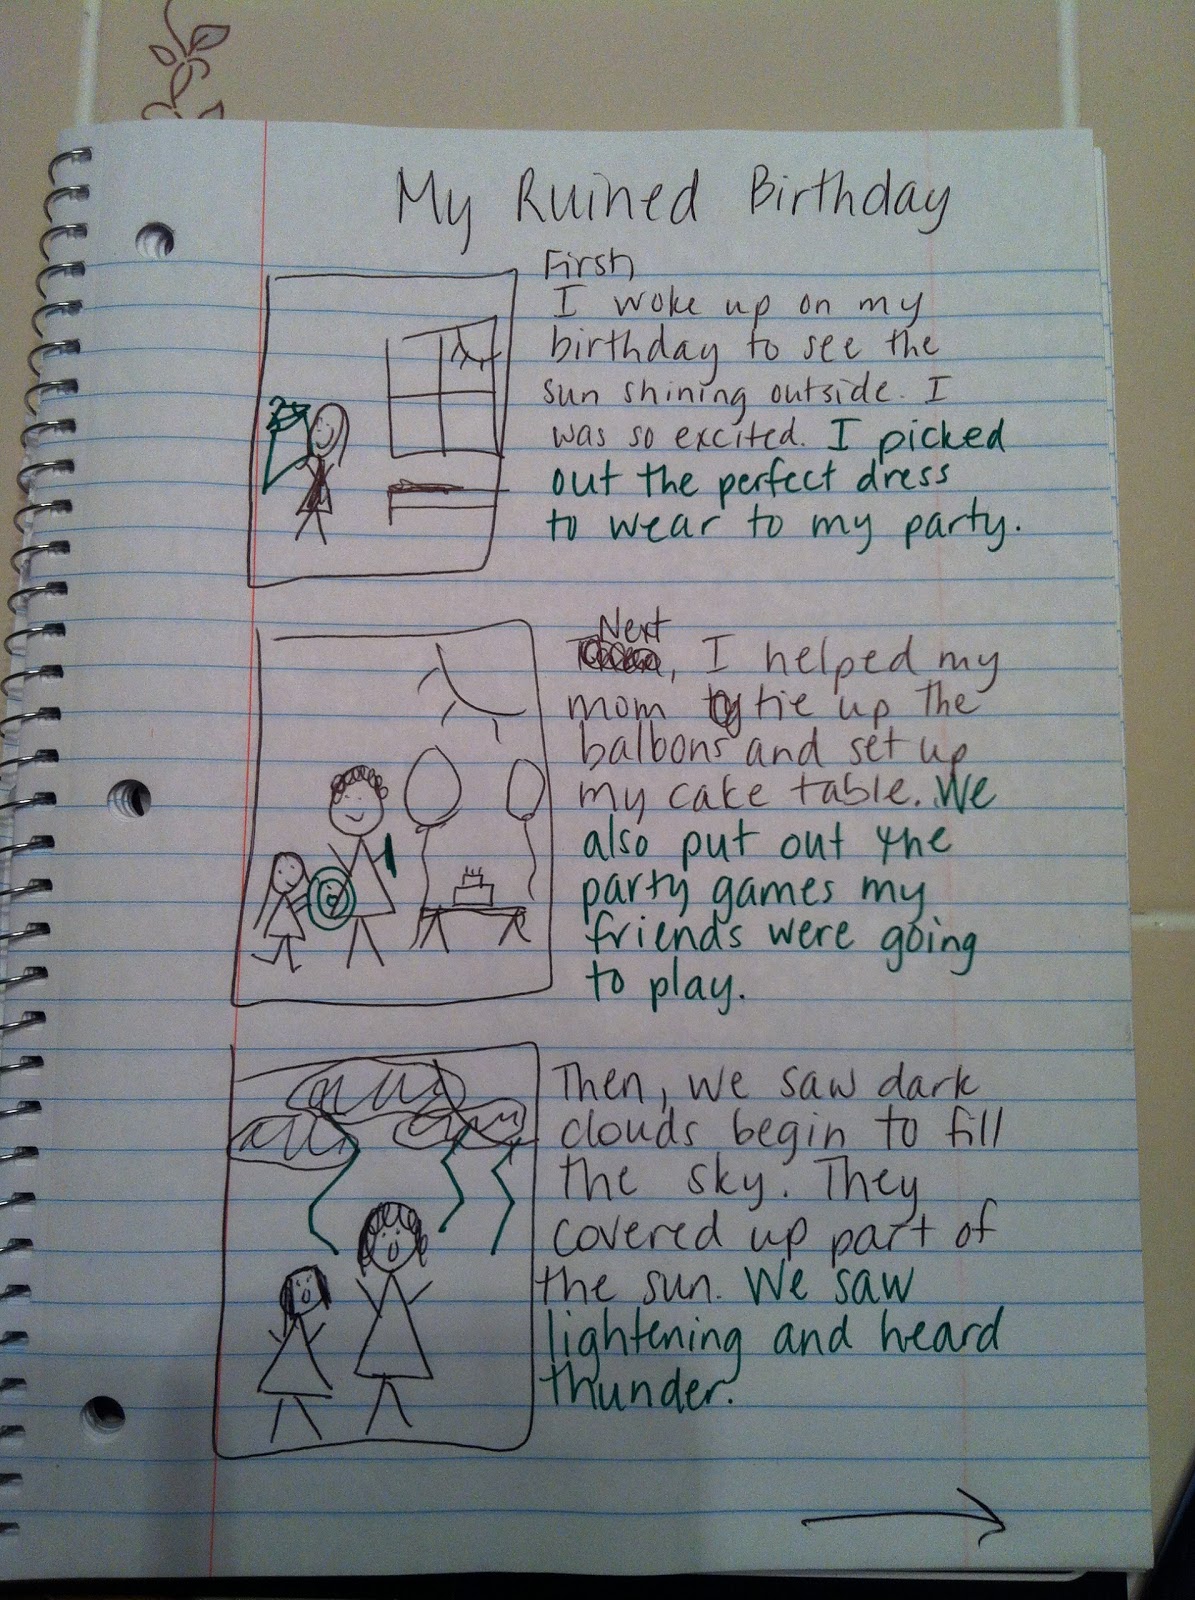 My Ruined Birthday
First,
I woke up on my
birthday to see the
sun shining outside. I
was so excited. I picked
out the perfect dress
to wear to my party.
Next
, I helped my
mom tie up the
balloons and set up
my cake table. We
also put out the
party games my
friends were going
to play.
Then, we saw dark
clouds begin to fill
the sky. They
covered up part of
the sun. We saw
lightening and heard
thunder.